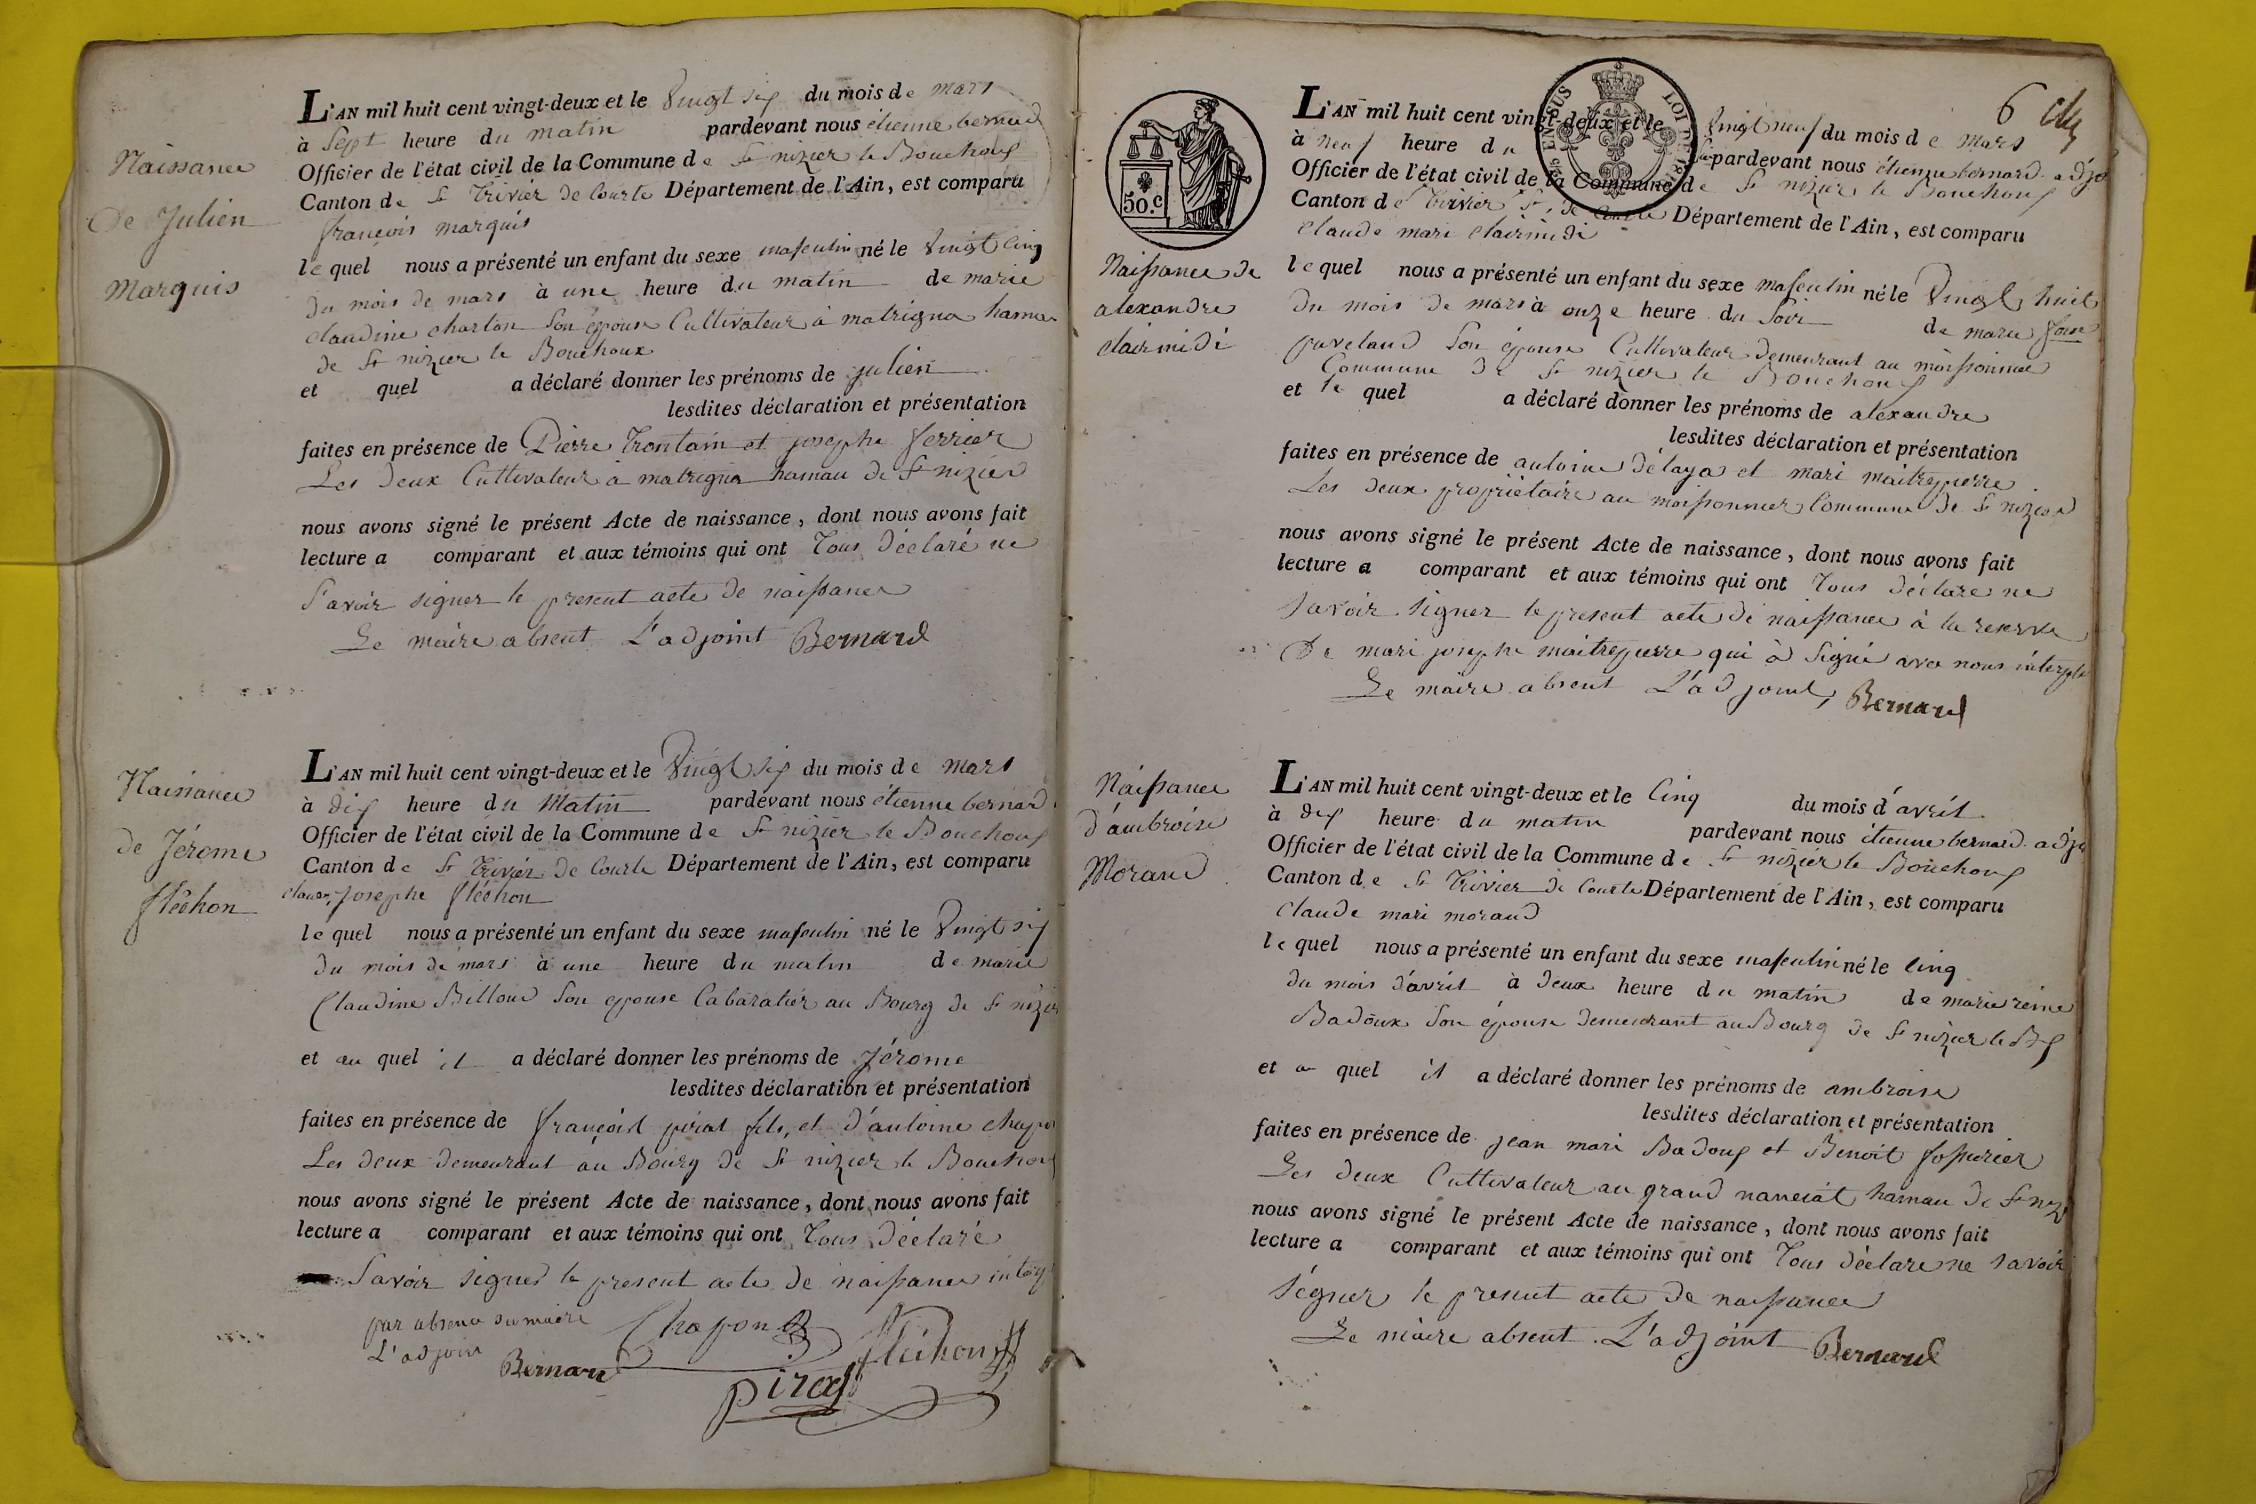 Naissance
De Julien
Marquis
L'AN mil huit cent vingt-deux et le Vingt six du mois de mars
à Sept heure du matin pardevant nous étienne bernard
Officier de l'état civil de la Commune de St nizier le Bouchoux
Canton de St Trivier de Courte Département de l'Ain, est comparu
françois marquis
le quel nous a présenté un enfant du sexe masculin né le Vingt Cinq
du mois de mars à une heure du matin de marie
claudine charton Son épouse Cultivateur à matrigna hamau
de St nizier le Bouchoux
et quel a déclaré donner les prénoms de julien
lesdites déclaration et présentation
faites en présence de Pierre Trontain et josephe ferrier
Les deux Cultivateur à matrigna hamau de St nizier
nous avons signé le présent Acte de naissance, dont nous avons fait
lecture a comparant et aux témoins qui ont Tous Déclaré ne
Savoir signer le present acte de naissance
Le maire absent L'adjoint Bernard
Naissance
de Jérome
fléchon
L'AN mil huit cent vingt-deux et le Vingt six du mois de mars
à dix heure du Matin pardevant nous étienne bernard
Officier de l'état civil de la Commune de St nizier le Bouchoux
Canton de St Trivier de Courte Département de l'Ain, est comparu
josephe fléchon
le quel nous a présenté un enfant du sexe masculin né le Vingt six
du mois de mars à une heure du matin de marie
Claudine Billoud Son epouse Cabaratier au Bourg de St nizier
et au quel il a déclaré donner les prénoms de Jérome
lesdites déclaration et présentation
faites en présence de françois pirat fils, et d'antoine chapon
Les deux demeurant au Bourg de St nizier le Bouchoux
nous avons signé le présent Acte de naissance, dont nous avons fait
lecture a comparant et aux témoins qui ont Tous Déclaré
Savoir signer le present acte de naissance
par absence du maire
L'adjoint Bernard Chapon fléchon
pirat
6
50.c
LOI DE
Naissance de
alexandre
clairmidi
L'AN mil huit cent vingt-deux et le Vingt neuf du mois de mars
à neuf heure du pardevant nous étienne bernard adjo
Officier de l'état civil de la Commune de St nizier le Bouchoux
Canton de Trivier St de Courte Département de l'Ain, est comparu
Claude mari clairmidi
le quel nous a présenté un enfant du sexe masculin né le Vingt huit
du mois de mars à onze heure du Soir de marie
Son épouse Cultivateur demeurant au moissonnier
Commune de St nizier le Bouchoux
et le quel a déclaré donner les prénoms de alexandre
lesdites déclaration et présentation
faites en présence de antoine délaya et mari maitrepierre
Les deux propriétaire au moissonnier Commune de St nizier
nous avons signé le présent Acte de naissance, dont nous avons fait
lecture a comparant et aux témoins qui ont Tous déclare ne
Savoir Signer le present acte de naissance à la reserve
De mari josephe maitrepierre qui à Signé avec nous
Le maire absent L'adjoint, Bernard
Naissance
d'ambroise
Moraud
L'AN mil huit cent vingt-deux et le Cinq du mois d'avril
à dix heure du matin pardevant nous étienne bernard adjo
Officier de l'état civil de la Commune de St nizier le Bouchoux
Canton de St Trivier de Courte Département de l'Ain, est comparu
Claude mari moraud
le quel nous a présenté un enfant du sexe masculin né le Cinq
du mois d'avril à deux heure du matin de marie reine
Badoux Son épouse demeurant au Bourg de St nizier le Bx
et a quel il a déclaré donner les prénoms de ambroise
lesdites déclaration et présentation
faites en présence de jean mari Badoux et Benoit fossurier
Les deux Cultivateur au grand nanciat hamau de St niz
nous avons signé le présent Acte de naissance, dont nous avons fait
lecture a comparant et aux témoins qui ont Tous déclare ne Savoir
Ségner le present acte de naissance
Le maire absent L'adjoint Bernard